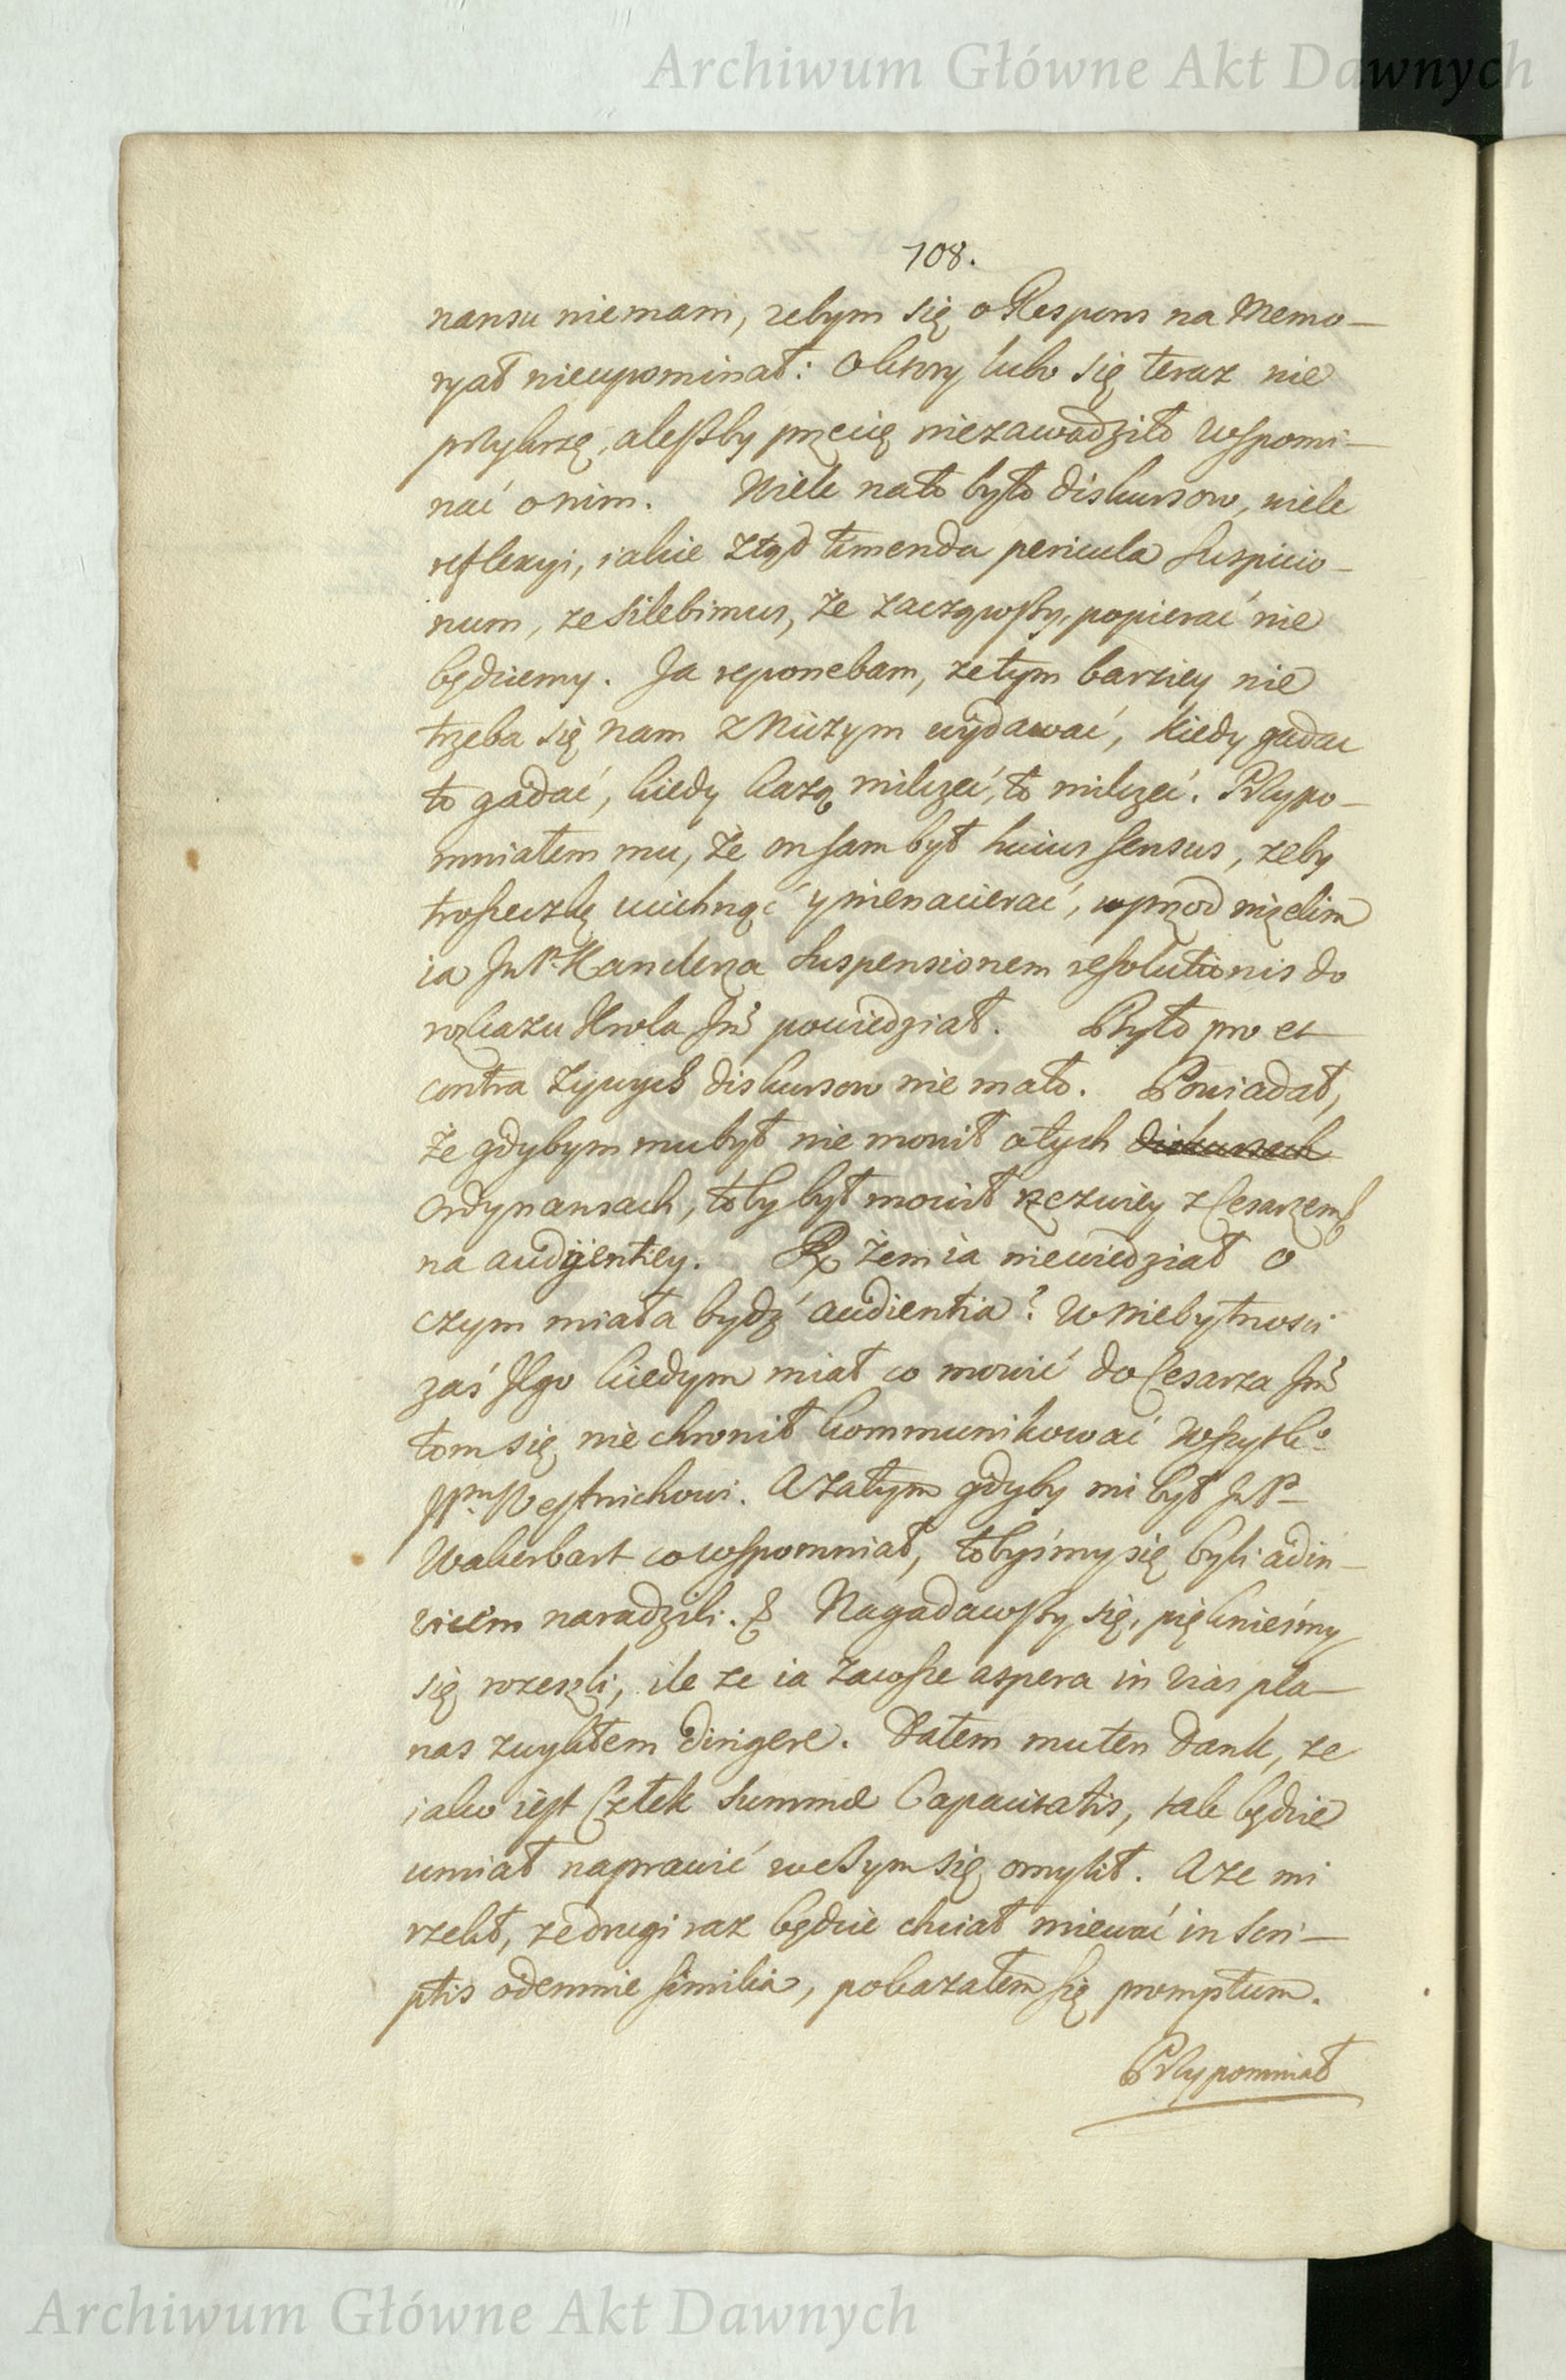 Archiwum Główne Akt Dawnych
108.
nansu niemam, zebym się o Respons na Memo-
ryał nieupominał: O ktory lubo się teraz nie
przykrzę, aleßby przecię niezawadziło wspomi-
nać o nim. Wiele nato było diskursow, wiele
reflexyi, iakie ztąd timenda pericula suspicio-
num, ze silebimus, że zacząwßy, popierać nie
będziemy. Ja reponebam, ze tym barziey nie
trzeba się nam z Niczym wydawać, kiedy gadac
to gadać, kiedy każą milczeć, to milczeć. Przypo-
mniałem mu, że on sam był huius sensus, zeby
troszeczkę ucichnąć y nienacierać, wprzod niżelim
ia JmP. Kanclerza suspensionem resolutionis do
rozkazu Krola Jm̃ powiedział. Było pro et
contra żywych diskursow nie mało. Powiadał,
że gdybym mu był nie mowił o tych diskursach
ordynansach, to by był mowił rzezwiey z Cesarzem
na audyentiey. Rx żem ia niewiedział o
czym miała bydź audientia? W niebytnosci
zaś Jego kiedym miał co mowić do Cesarza Jm̃
tom się nie chronił kommunikować wszytko
JPm Vestrichowi. A zatym gdyby mi był JmP.
Wakerbart co wspomniał, tobyśmy się byli adin-
vicem naradzili. Nagadawßy się, pięknieśmy
się rozeszli, ile ze ia zawsze aspera in vias pla-
nas zwykłem dirigere. Dałem mu ten dank, ze
iako iest Człek summæ Capacitatis, tak będzie
umiał naprawić w czym się omylił. A ze mi
rzekł, ze drugi raz będzie chciał miewać in scri-
ptis odemnie similia, pokazałem się promptum.
Przypomniał
Archiwum Główne Akt Dawnych